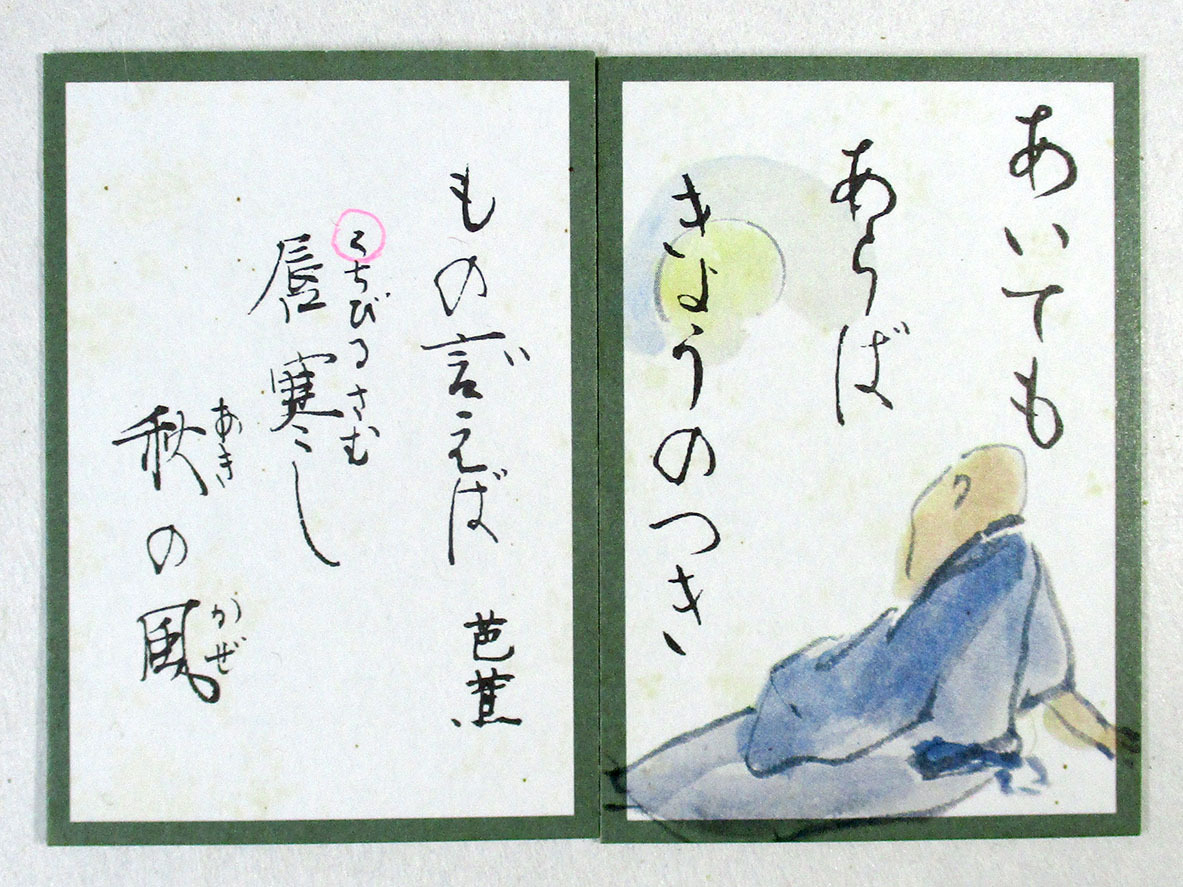 あいても
あらば
きょうのつき
い
もの言えば 芭蕉
くちびるさむ
唇寒し
あき かぜ
秋の風